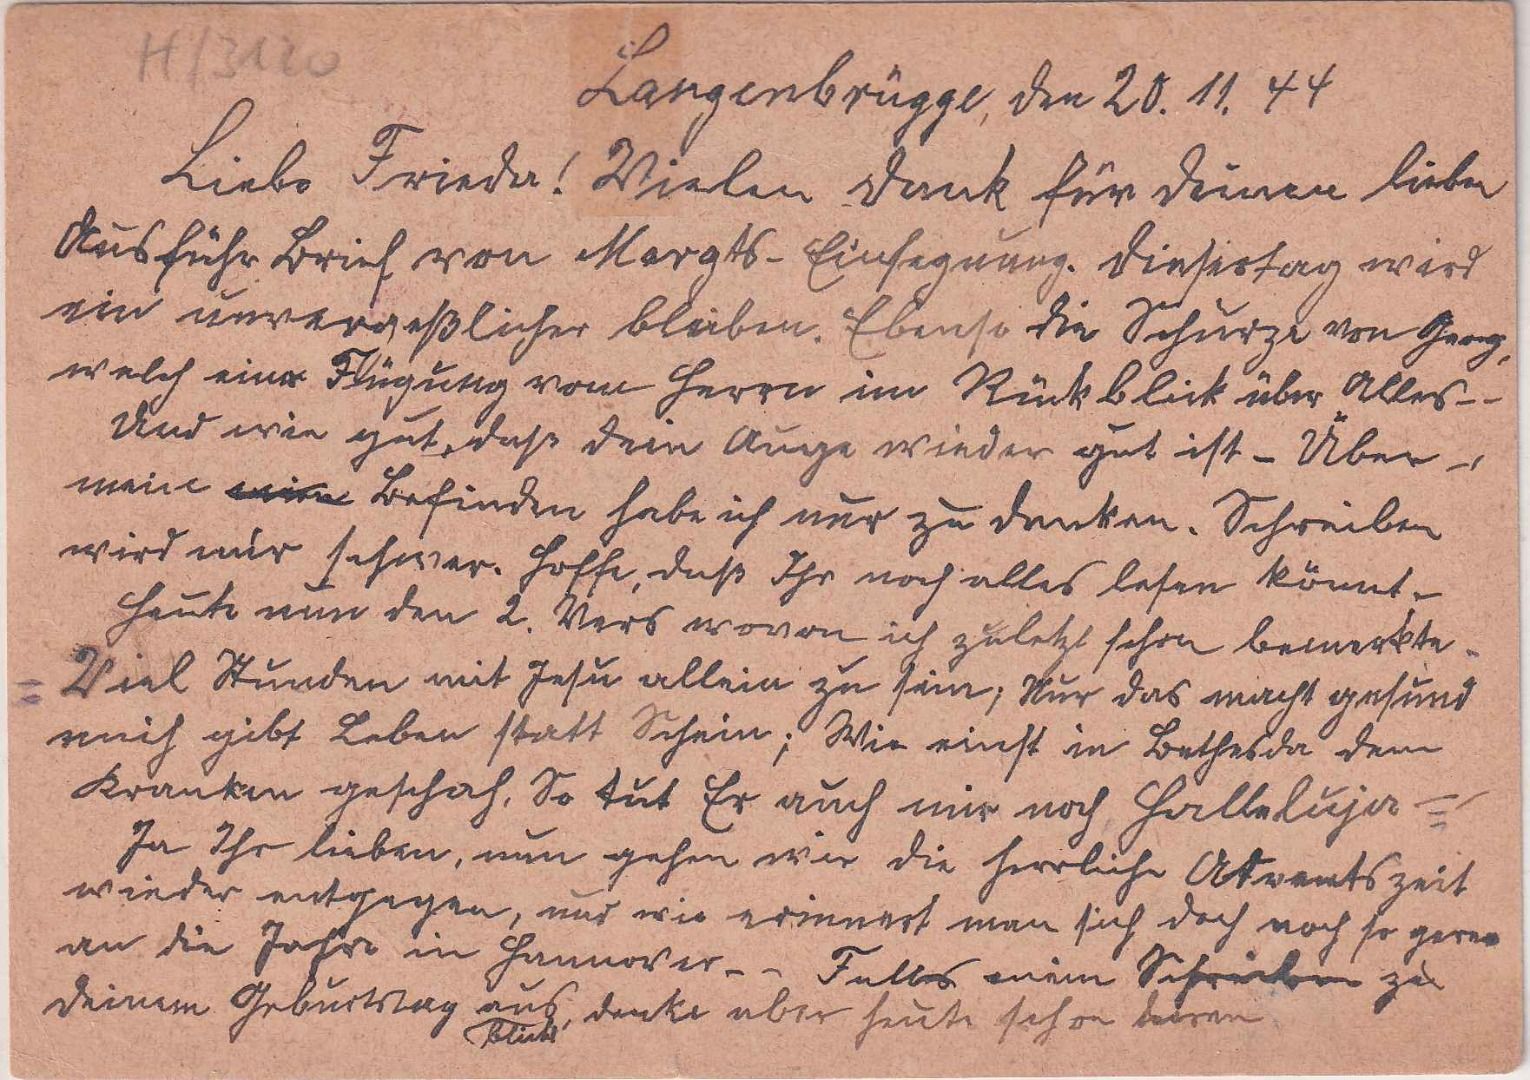 H/3120
Langenbrügge, den 20. 11. 44
Liebe Frieda! Vielen Dank für Deinen lieben
Ausführ Brief von Margts - Einsegnung. Dieser Tag wird
ein unvergeßlicher bleiben. Ebenso die Schürze von Georg,
welch eine Fügung vom Herrn im Rückblick über Alles--
Und wie gut, daß dein Auge wieder gut ist - Über -
mein Befinden habe ich nur zu danken. Schreiben
wird mir schwer. Hoffe, daß Ihr noch alles lesen könnt.-
Heute nun den 2. Vers wovon ich zuletzt schon bemerkte -
= Viel Stunden mit Jesu allein zu sein; Nur das macht gesund
mich gibt Leben statt Schein; Wie einst in Bethesda dem
Kranken geschah, So tut Er auch mir noch Halleluja =
Ja Ihr lieben, nun gehen wir die herrliche Adventszeit
wieder entgegen, und wie erinnert man sich doch noch so gerne
an die Jahre in Hannover -- Falls mein Schreiben zu
Deinem Geburtstag aus, denke aber heute schon daran
blieb